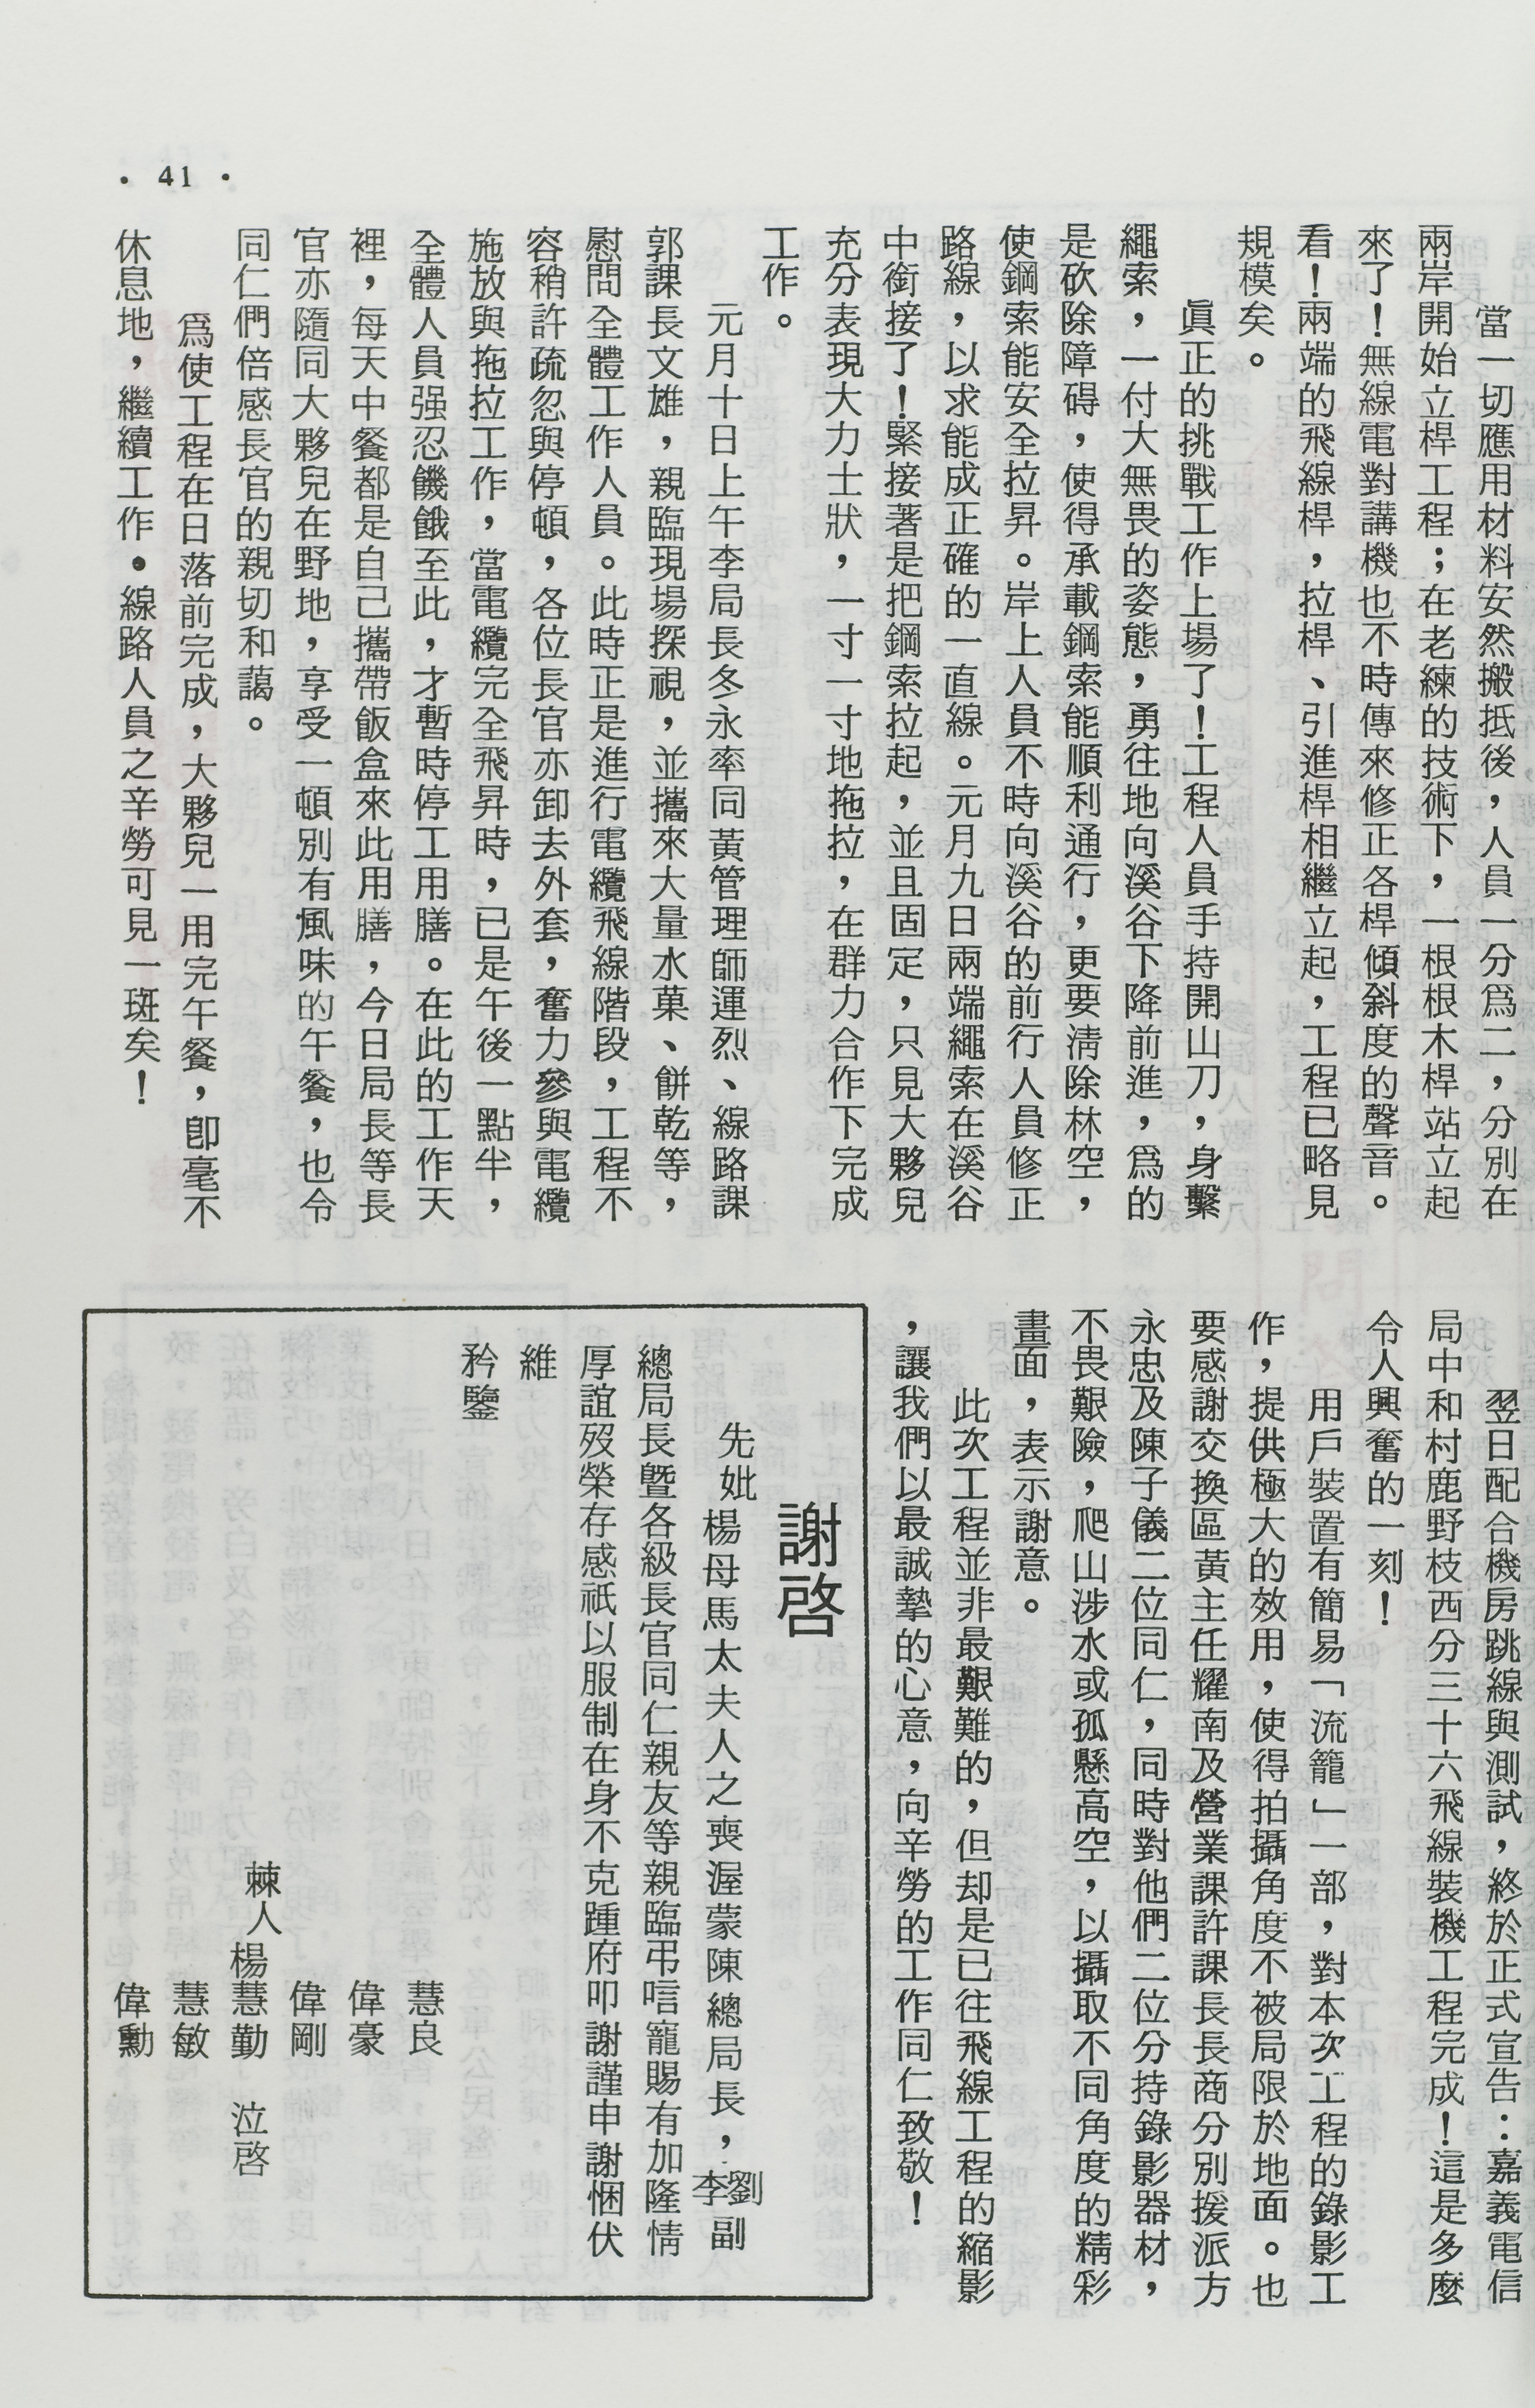 • 41 •
當一切應用材料安然搬抵後，人員一分爲二，分別在
兩岸開始立桿工程；在老練的技術下，一根根木桿站立起
來了！無線電對講機也不時傳來修正各桿傾斜度的聲音。
看！兩端的飛線桿，拉桿、引進桿相繼立起，工程已略見
規模矣。
眞正的挑戰工作上場了！工程人員手持開山刀，身繫
繩索，一付大無畏的姿態，勇往地向溪谷下降前進，爲的
是砍除障碍，使得承載鋼索能順利通行，更要淸除林空，
使鋼索能安全拉昇。岸上人員不時向溪谷的前行人員修正
路線，以求能成正確的一直線。元月九日兩端繩索在溪谷
中銜接了！緊接著是把鋼索拉起，並且固定，只見大夥兒
充分表現大力士狀，一寸一寸地拖拉，在群力合作下完成
工作。
元月十日上午李局長冬永率同黃管理師運烈、線路課
郭課長文雄，親臨現場探視，並攜來大量水菓、餅乾等，
慰問全體工作人員。此時正是進行電纜飛線階段，工程不
容稍許疏忽與停頓，各位長官亦卸去外套，奮力參與電纜
施放與拖拉工作，當電纜完全飛昇時，已是午後一點半，
全體人員强忍饑餓至此，才暫時停工用膳。在此的工作天
裡，每天中餐都是自己攜帶飯盒來此用膳，今日局長等長
官亦隨同大夥兒在野地，享受一頓別有風味的午餐，也令
同仁們倍感長官的親切和藹。
爲使工程在日落前完成，大夥兒一用完午餐，卽毫不
休息地，繼續工作・線路人員之辛勞可見一斑矣！
翌日配合機房跳線與測試，終於正式宣告：嘉義電信
局中和村鹿野枝西分三十六飛線裝機工程完成！這是多麼
令人興奮的一刻！
用戶裝置有簡易「流籠」一部，對本次工程的錄影工
作，提供極大的效用，使得拍攝角度不被局限於地面。也
要感謝交換區黃主任耀南及營業課許課長長商分別援派方
永忠及陳子儀二位同仁，同時對他們二位分持錄影器材，
不畏艱險，爬山涉水或孤懸高空，以攝取不同角度的精彩
畫面，表示謝意。
此次工程並非最艱難的，但却是已往飛線工程的縮影
，讓我們以最誠摯的心意，向辛勞的工作同仁致敬！
謝啓
先妣楊母馬太夫人之喪渥蒙陳總局長，劉李副
總局長曁各級長官同仁親友等親臨弔唁寵賜有加隆情
厚誼歿榮存感祇以服制在身不克踵府叩謝謹申謝悃伏
維
矜鑒
慧良
偉豪
偉剛
棘人楊慧勤　泣啓
慧敏
偉勳